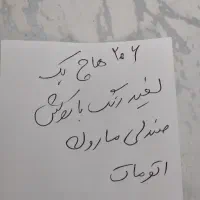 ۲۰۶ هاچ بک
سفید رنگ با روکش
صندلی ماروک
اتومات